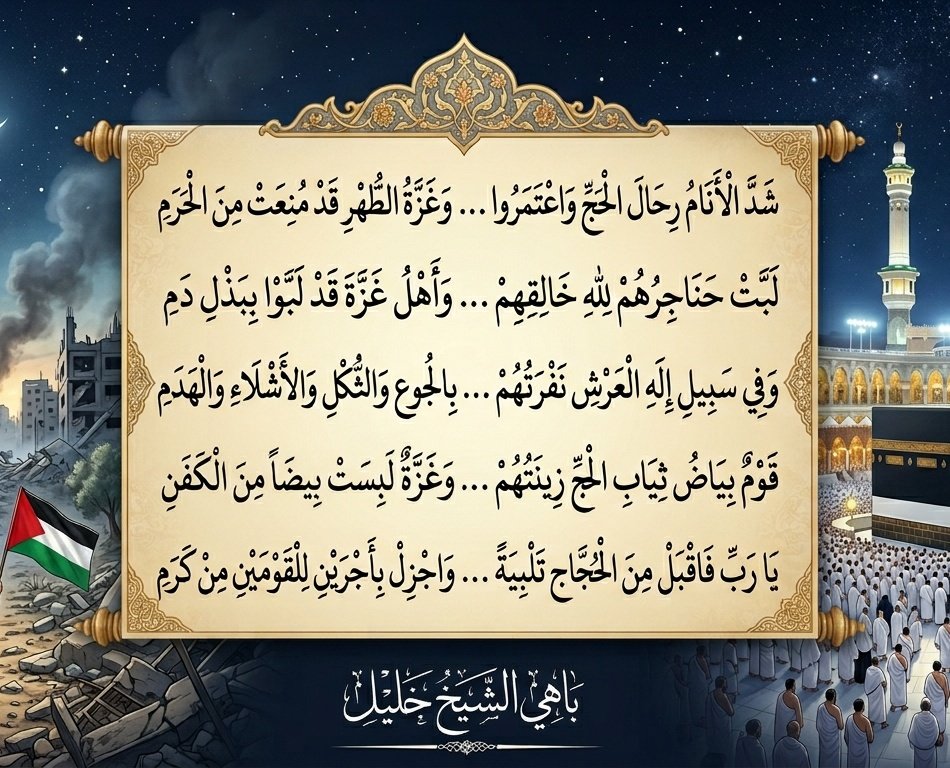 شَدَّ الْأَنَامُ رِحَالَ الْحَجِّ وَاعْتَمَرُوا ... وَغَزَّةُ الطُّهْرِ قَدْ مُنِعَتْ مِنَ الْحَرَمِ
لَبَّتْ حَنَاجِرُهُمْ لِلَّهِ خَالِقِهِمْ ... وَأَهْلُ غَزَّةَ قَدْ لَبَّوْا بِبَذْلِ دَمِ
وَفِي سَبِيلِ إِلَهِ الْعَرْشِ نَفْرَتُهُمْ ... بِالْجُوعِ وَالثُّكْلِ وَالأَشْلَاءِ وَالْهَدَمِ
قَوْمٌ بِيَاضُ ثِيَابِ الْحَجِّ زِينَتُهُمْ ... وَغَزَّةٌ لَبِسَتْ بِيضَاً مِنَ الْكَفَنِ
يَا رَبِّ فَاقْبَلْ مِنَ الْحُجَّاجِ تَلْبِيَةً ... وَاجْزِلْ بِأَجْرَيْنِ لِلْقَوْمَيْنِ مِنْ كَرَمِ
بَاهِي الشَّيَخُ خَلِيْلِ